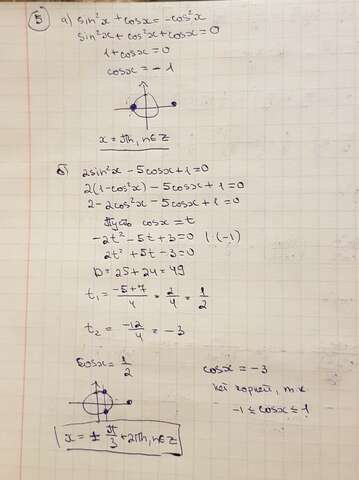 5 a) sin²x + cosx = -cos²x
sin²x + cos²x + cosx = 0
1 + cosx = 0
cosx = -1
x = πn, n∈Z
б) 2sin²x - 5cosx + 1 = 0
2(1-cos²x) - 5cosx + 1 = 0
2 - 2cos²x - 5cosx + 1 = 0
Пусть cosx = t
-2t² - 5t + 3 = 0 | · (-1)
2t² + 5t - 3 = 0
D = 25 + 24 = 49
t₁ = (-5+7)/4 = 2/4 = 1/2
t₂ = -12/4 = -3
cosx = 1/2
cosx = -3
нет корней, т к
-1 ≤ cosx ≤ 1
x = ± π/3 + 2πn, n∈Z